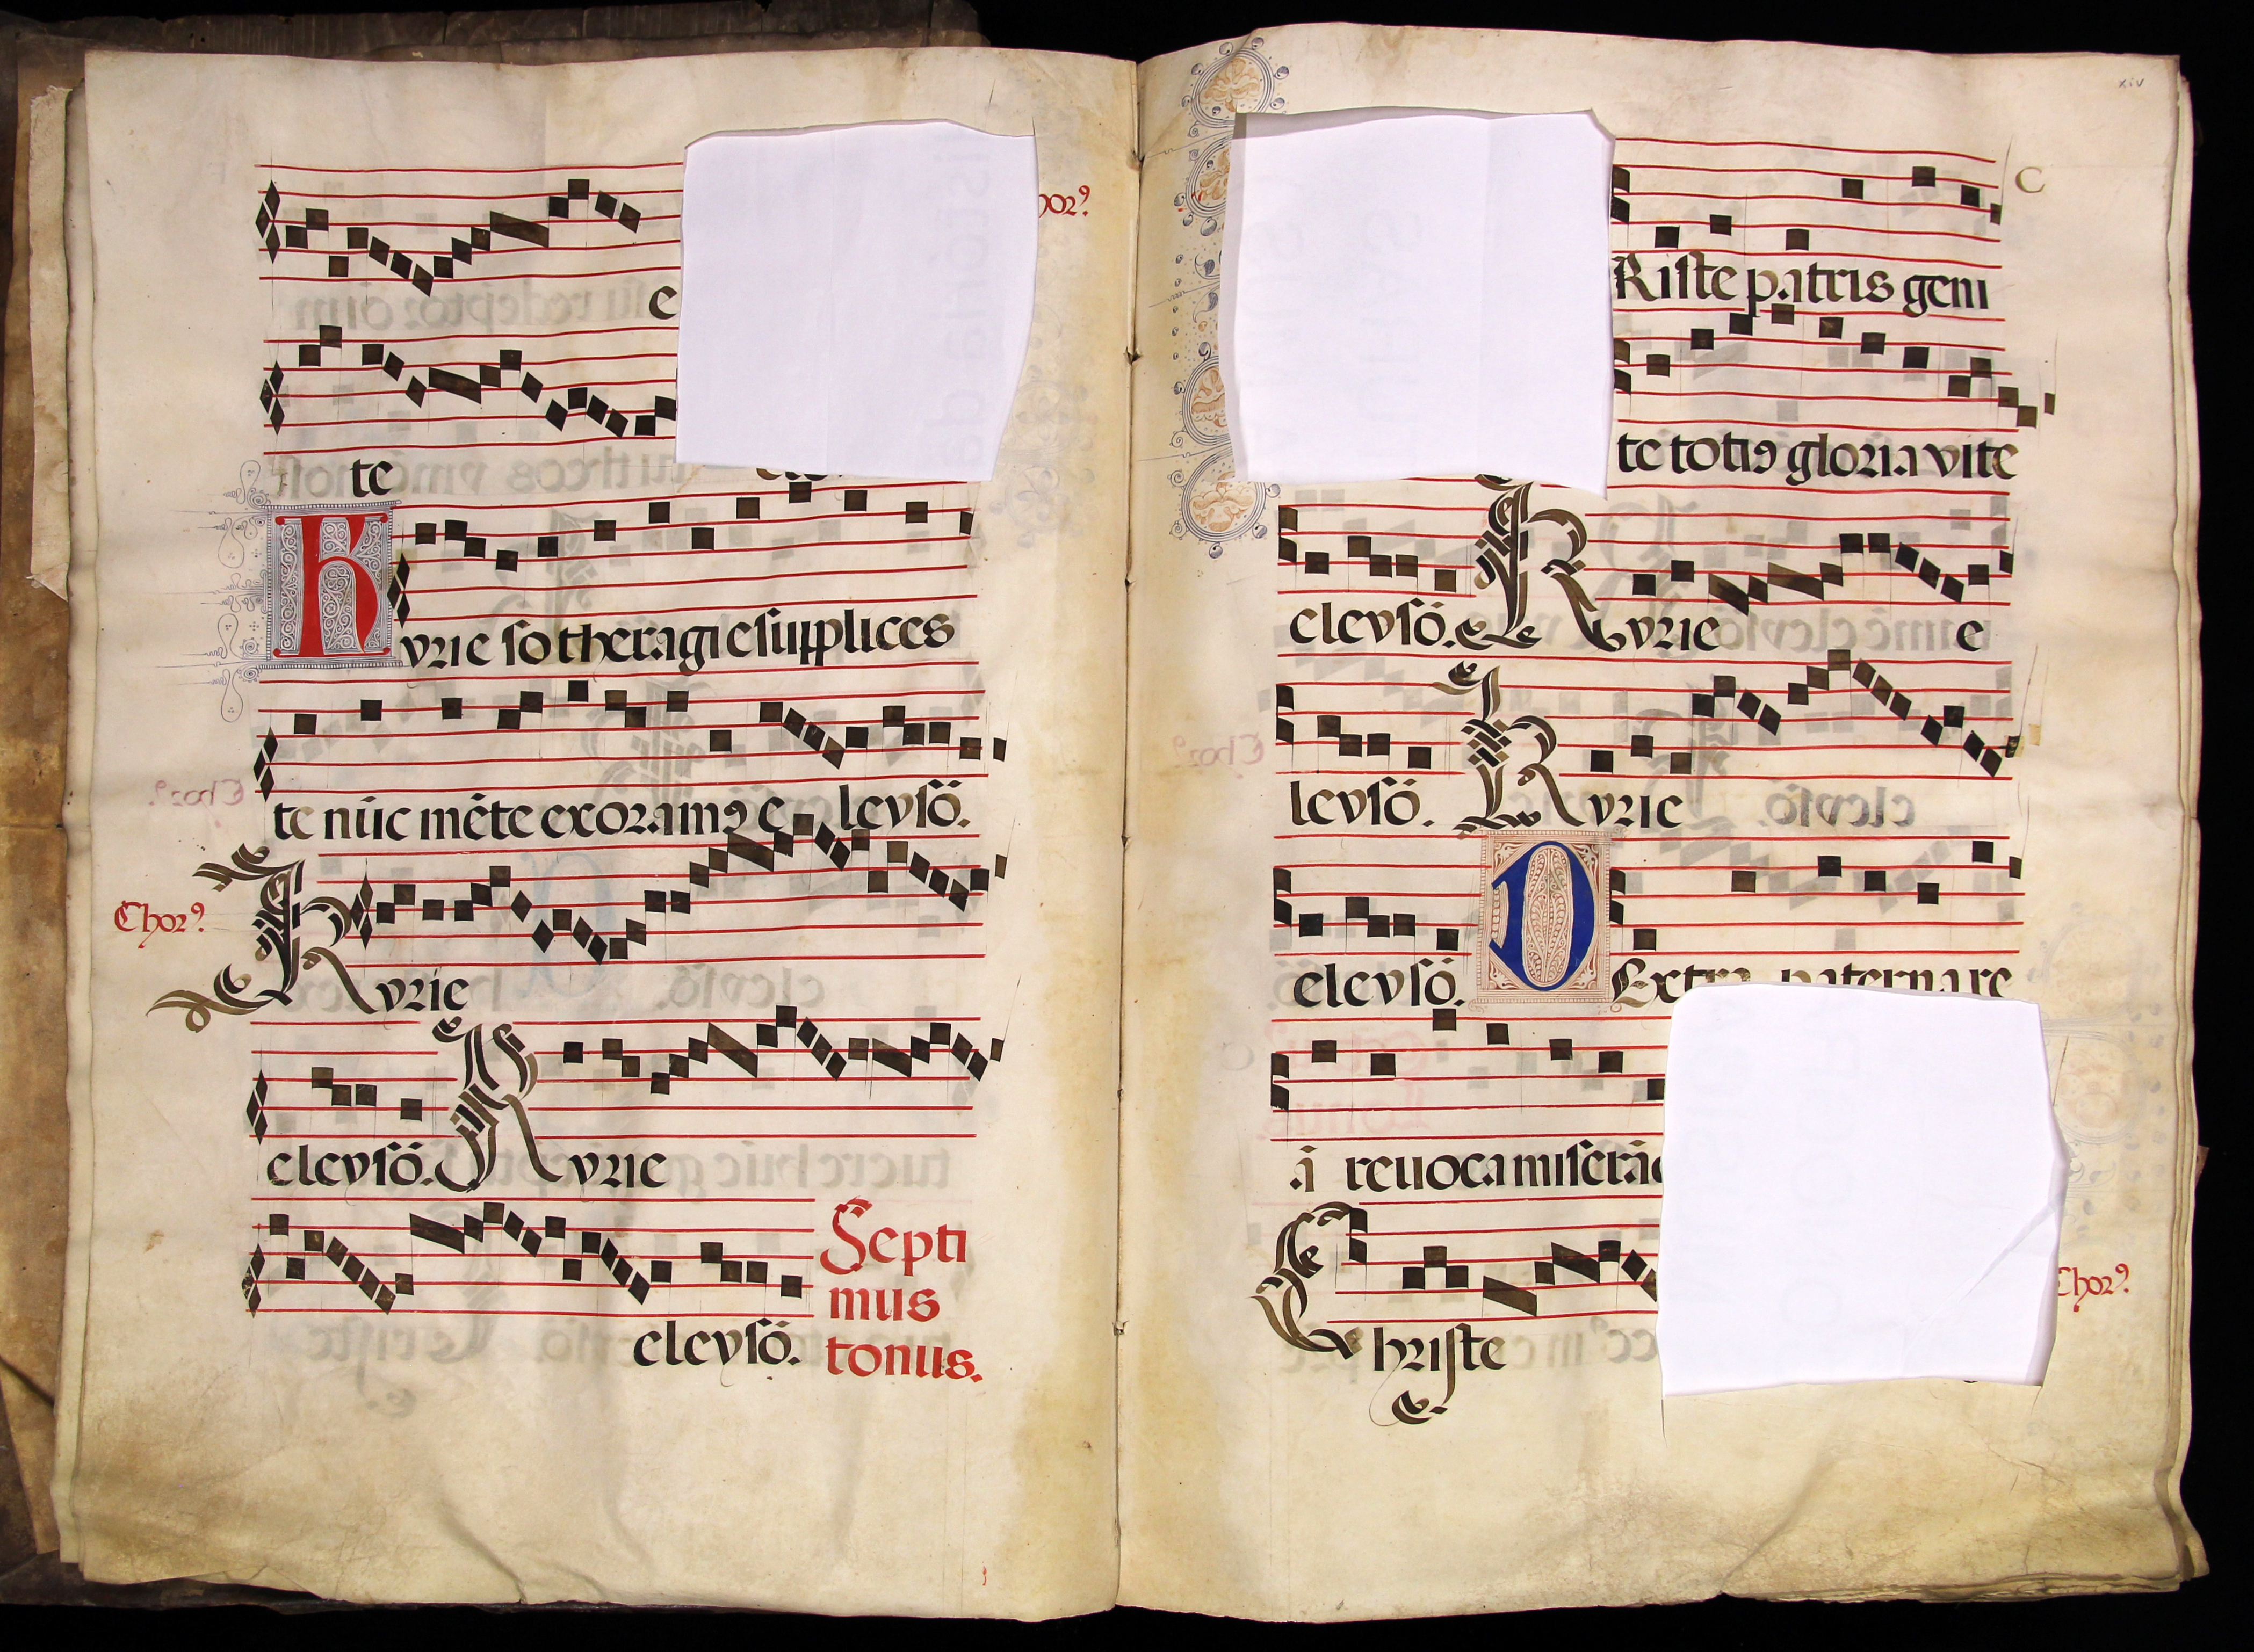 e
te
kyrie sotheragie supplices
te nūc mēte exoramꝰ e leysō.
Chorꝰ.
Kyrie
eleysō. Kyrie
eleysō.
Septi
mus
tonus.
xiv
C
Riste patris geni
te totiꝰ gloria vite
eleysō. Kyrie e
leysō. Kyrie
eleysō. Dextra paterna re
ā reuoca
Christe
Chorꝰ.